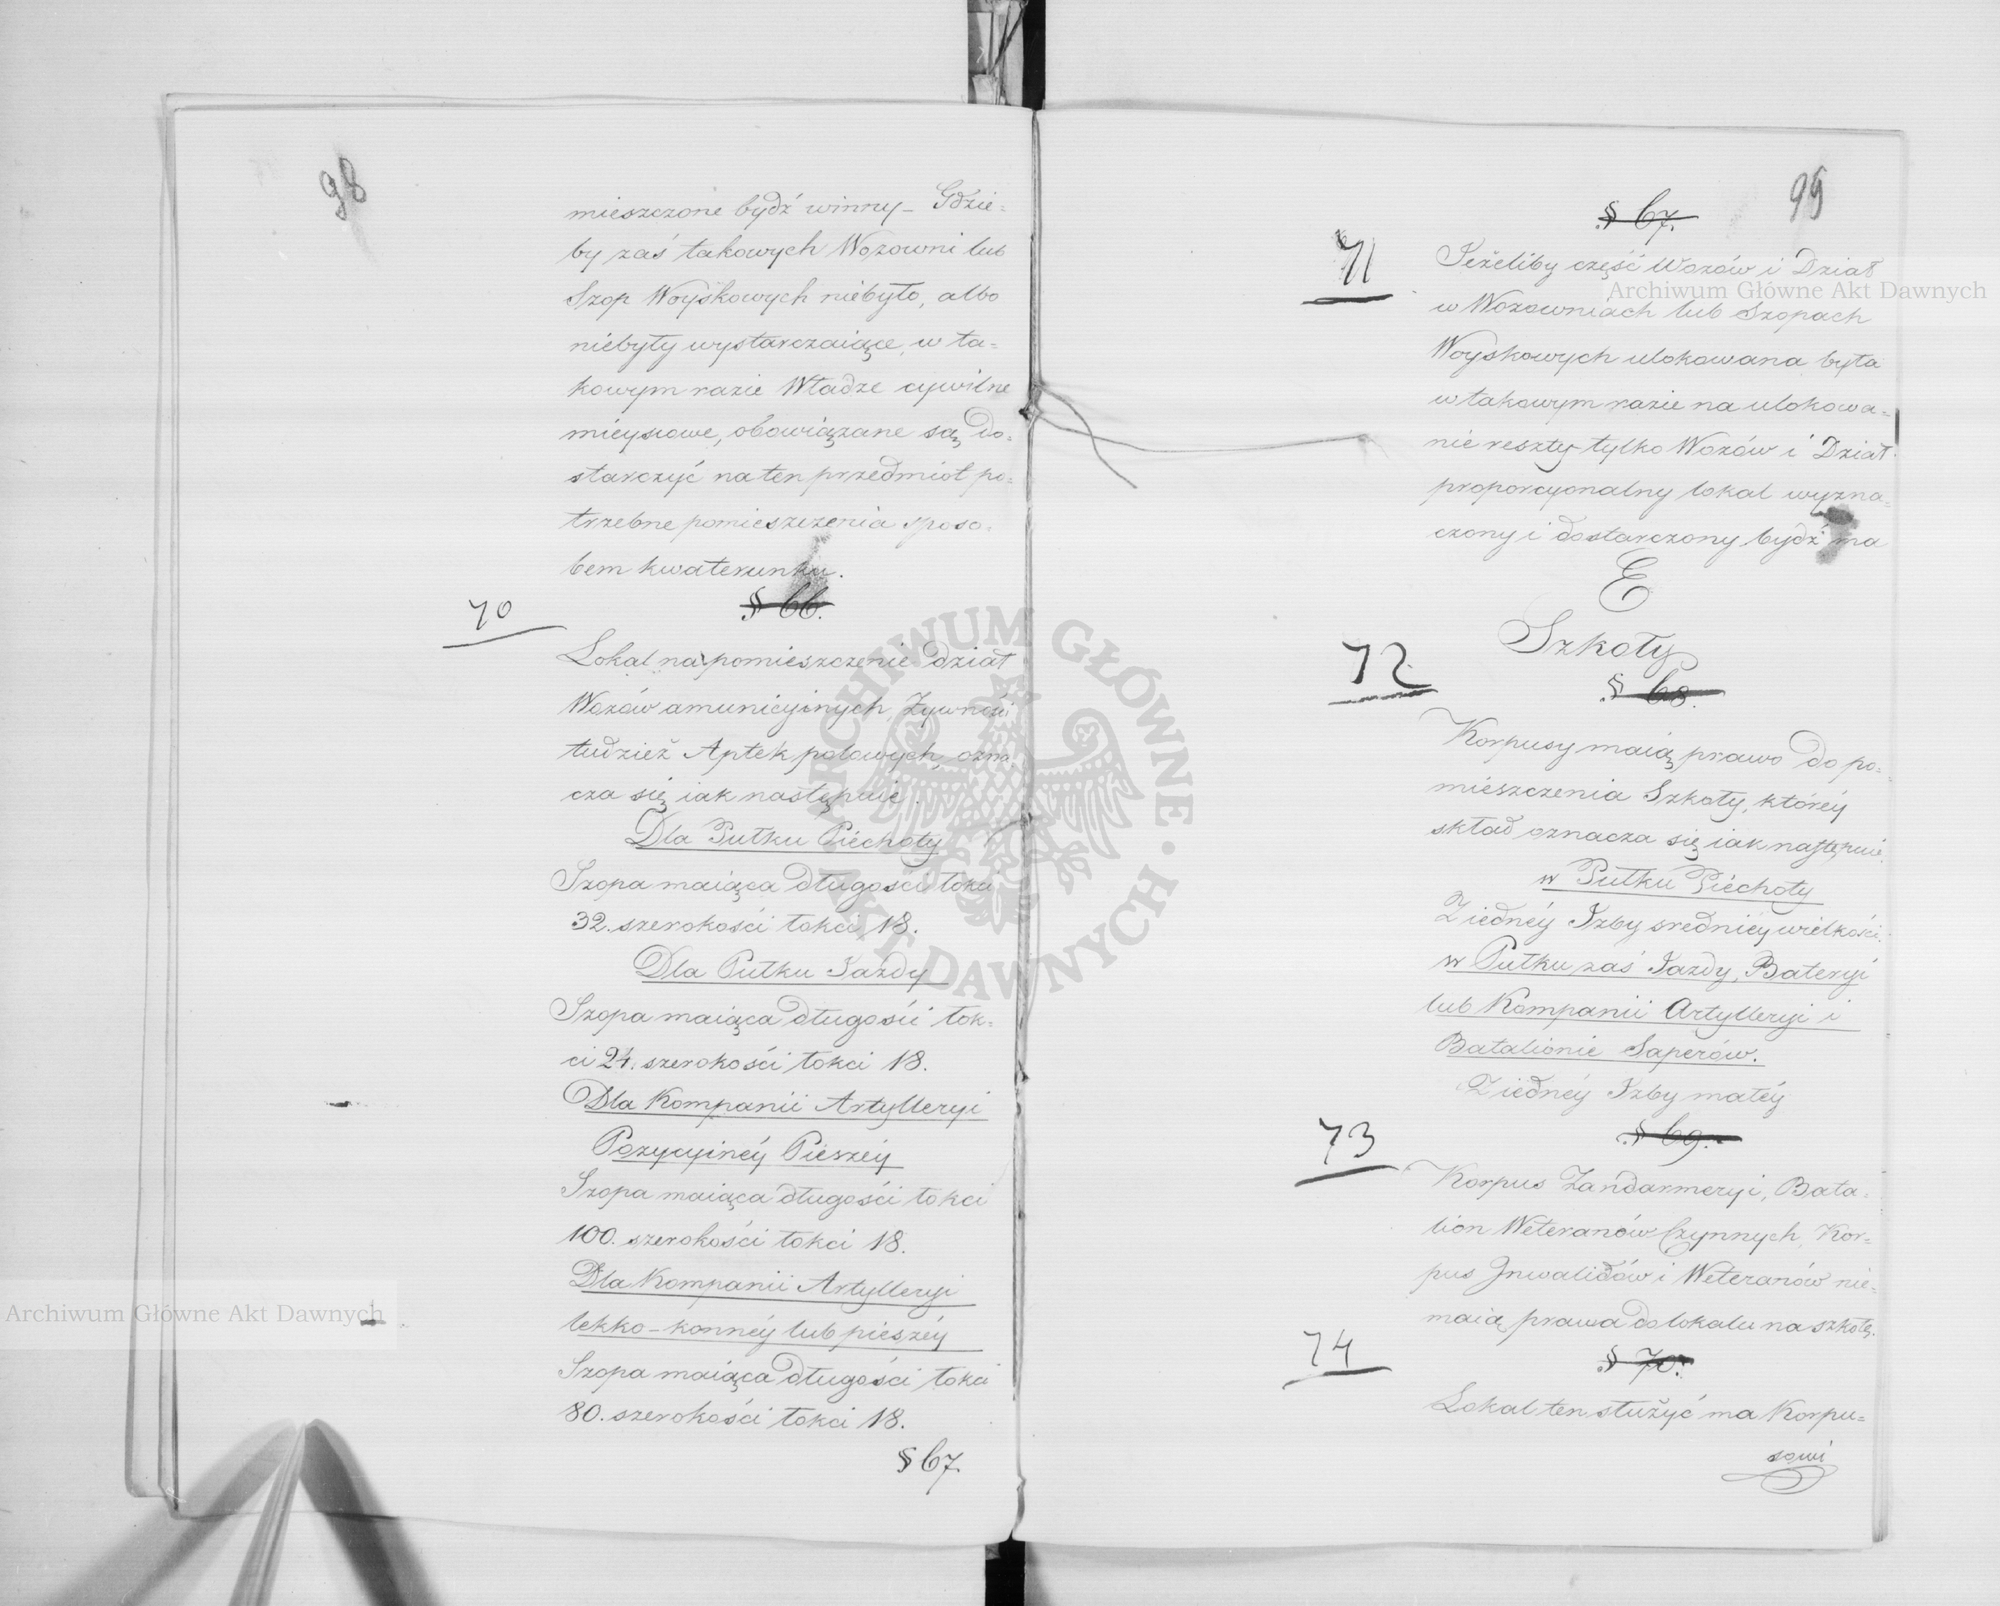 98
mieszczone bydź winny – Gdzie=
by zaś takowych Wozowni lub
Szop Woyskowych niebyło, albo
niebyły wystarczaiące, w ta=
kowym razie Władze cywilne
mieyscowe, obowiązane są do=
starczyć na ten przedmiot po=
trzebne pomieszczenia sposo=
bem kwaterunku.
§ 66.
70
Lokal na pomieszczenie dział
Wozów amunicyinych, Żywności
tudzież Aptek polowych, ozna=
cza się iak następuie.
Dla Pułku Piéchoty
Szopa maiąca długości łokci
32. szerokości łokci 18.
Dla Pułku Jazdy
Szopa maiąca długości łok=
ci 24. szerokości łokci 18.
Dla Kompanii Artylleryi
Pozycyinéy Pieszéy
Szopa maiąca długości łokci
100. szerokości łokci 18.
Dla Kompanii Artylleryi
lekko-konnéy lub pieszéy
Szopa maiąca długości łokci
80. szerokości łokci 18.
§ 67.
99
§ 67.
71
Jeżeliby część Wozów i Dział
w Wozowniach lub Szopach
Woyskowych ulokowana była
w takowym razie na ulokowa=
nie reszty tylko Wozów i Dział
proporcyonalny lokal wyzna=
czony i dostarczony bydź ma
E
Szkoły
72
§ 68.
Korpusy maią prawo do po=
mieszczenia Szkoły, któréy
skład oznacza się iak następuie.
w Pułku Piéchoty
Z iednéy Izby średniéy wielkości.
w Pułku zaś Jazdy, Bateryi
lub Kompanii Artylleryi i
Batalionie Saperów.
Z iednéy Izby małéy
§ 69.
73
Korpus Żandarmeryi, Bata=
lion Weteranów Czynnych, Kor=
pus Inwalidów i Weteranów nie=
maią prawa do lokalu na szkołę.
74
§ 70.
Lokal ten służyć ma Korpu=
sowi
Archiwum Główne Akt Dawnych
Archiwum Główne Akt Dawnych
ARCHIWUM GŁÓWNE AKT DAWNYCH